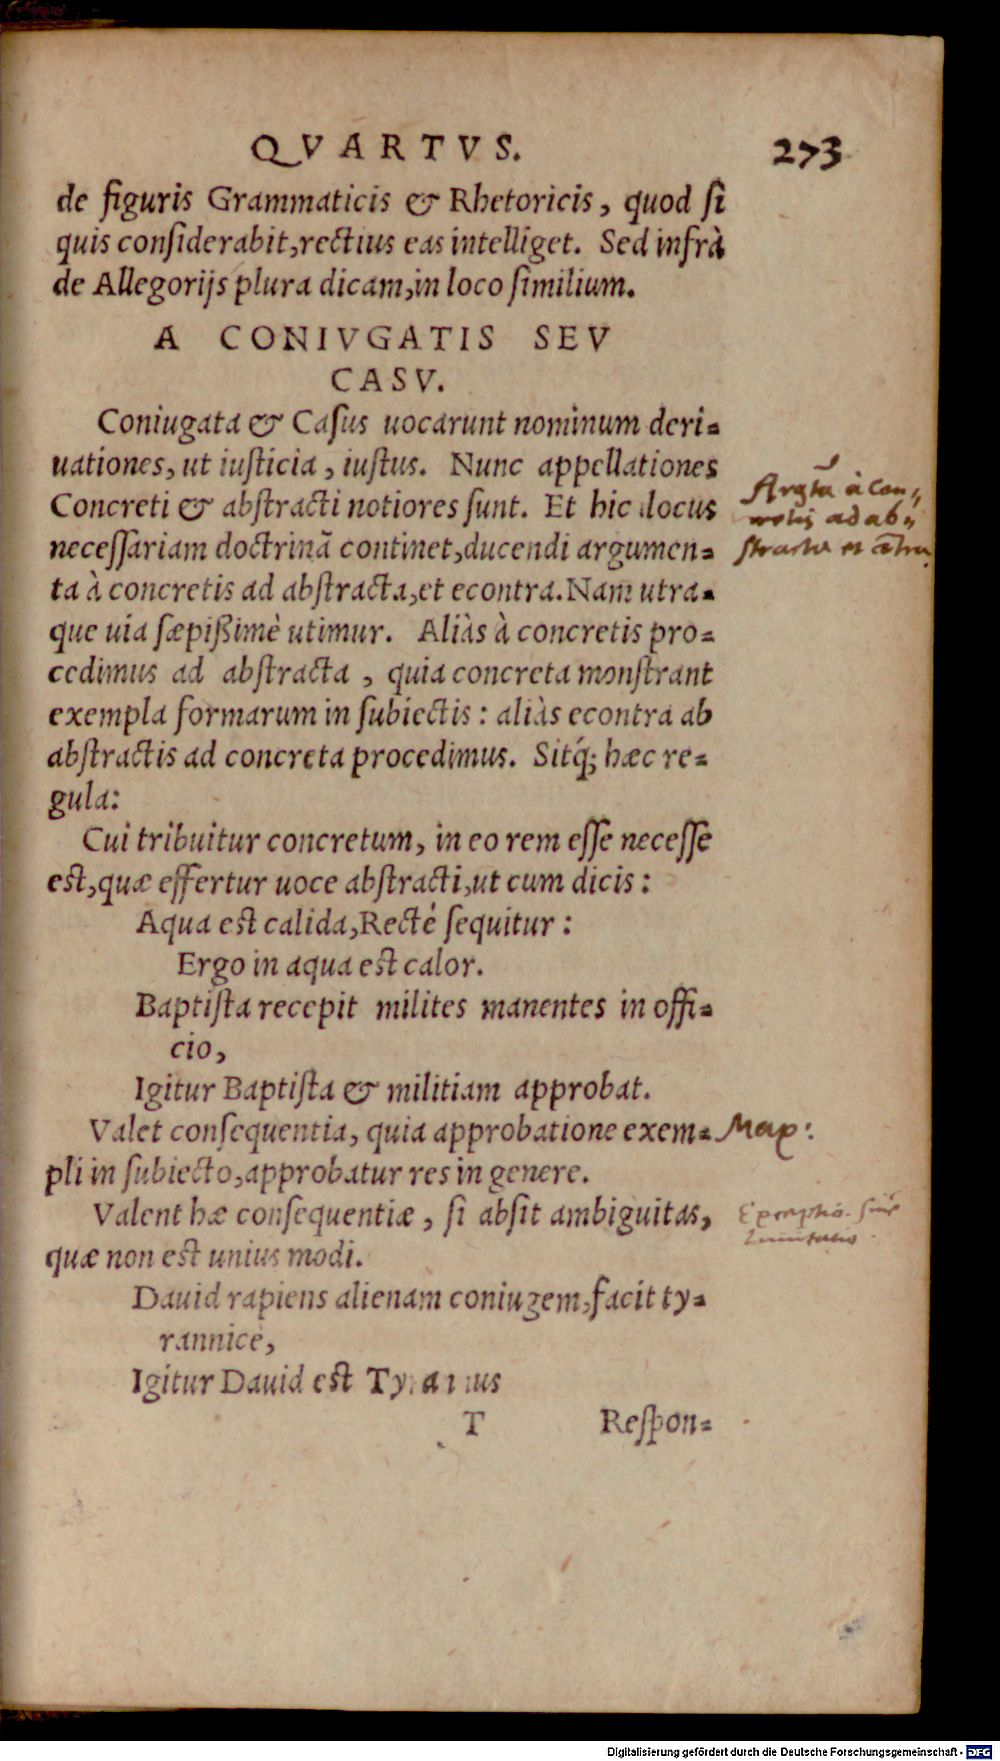 QVARTVS. 273
de figuris Grammaticis & Rhetoricis, quod ſi
quis conſiderabit, rectius eas intelliget. Sed infrà
de Allegorijs plura dicam, in loco ſimilium.
A CONIVGATIS SEV
CASV.
Coniugata & Caſus uocarunt nominum deri-
uationes, ut iuſticia, iuſtus. Nunc appellationes
Concreti & abſtracti notiores ſunt. Et hic locus
neceſſariam doctrinã continet, ducendi argumen-
ta à concretis ad abſtracta, et econtra. Nam utra-
que uia ſæpißimè utimur. Aliàs à concretis pro-
cedimus ad abſtracta, quia concreta monſtrant
exempla formarum in ſubiectis: aliàs econtra ab
abſtractis ad concreta procedimus. Sitq́; hæc re-
gula:
Cui tribuitur concretum, in eo rem eſſe neceſſe
est, quæ effertur uoce abſtracti, ut cum dicis:
Aqua est calida, Rectè ſequitur:
Ergo in aqua est calor.
Baptiſta recepit milites manentes in offi-
cio,
Igitur Baptiſta & militiam approbat.
Valet conſequentia, quia approbatione exem-
pli in ſubiecto, approbatur res in genere.
Valent hæ conſequentiæ, ſi abſit ambiguitas,
quæ non est unius modi.
Dauid rapiens alienam coniugem, facit ty-
rannicè,
Igitur Dauid est Tyrannus
T Reſpon-
à con-
ad ab-
ſtracta et
Max: